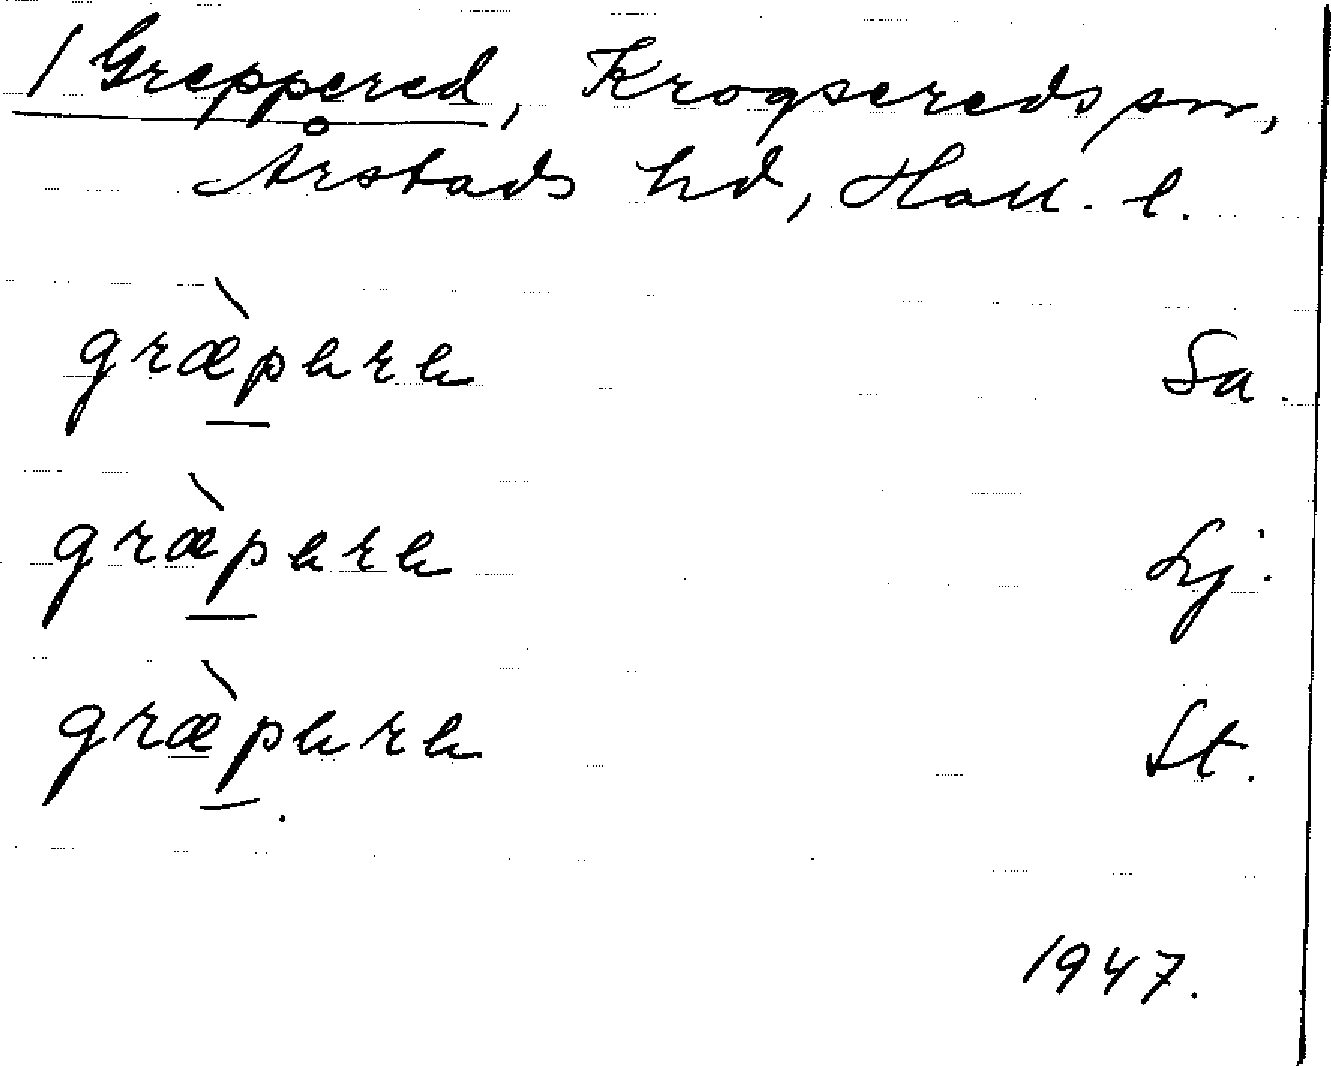 / Greppered, Krogsereds sn,
Årstads hd, Hall. l.
græ̀pere Sa.
græ̀pere Lj.
græ̀pere St.
1947.